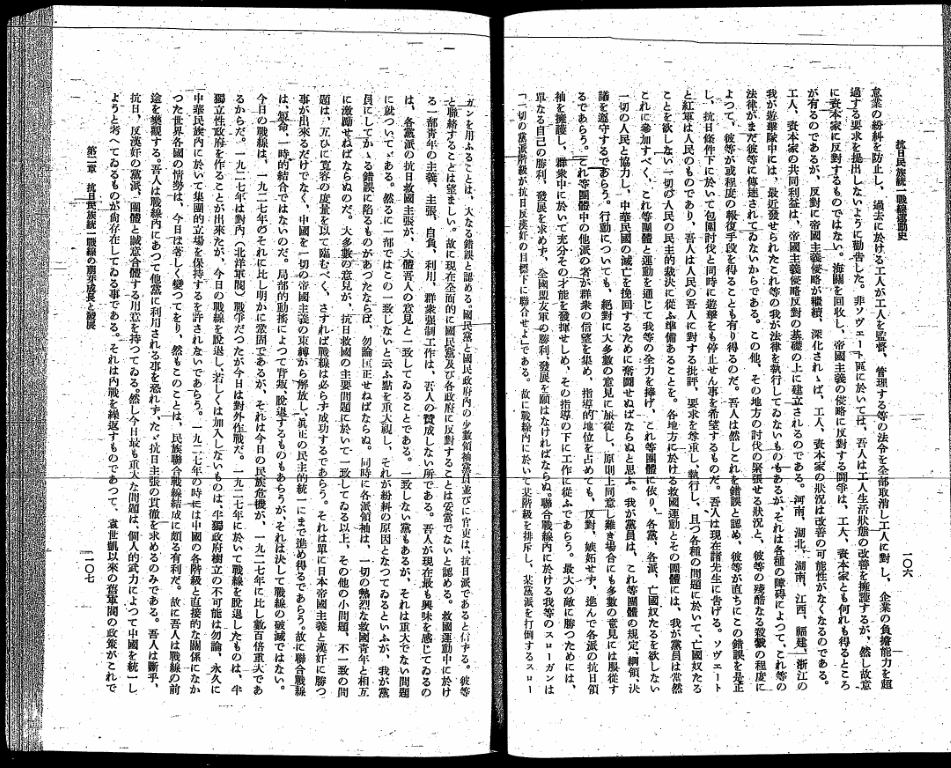 抗日民族統一戰線運動史
一〇六
意業の紛糾を防止し、過去に於ける工人が工人を監督、管理する等の法令を全部取消し工人に對し、企業の負擔能力を超
過する要求を提出しないよう勸告した。非ソヴェート區に於いては、吾人は工人生活狀態の改善を擁護するが、然し故意
に資本家に反對するものではない。海關を回收し、帝國主義の侵略に反對する鬪爭は、工人、資本家とも何れも得るところ
が有るのであるが、反對に帝國主義侵略が繼續、深化されゝば、工人、資本家の狀況は改善の可能性がなくなるのである。
工人、資本家の共同利益は、帝國主義侵略反對の基礎の上に建立されるのである。河南、湖北、湖南、江西、福建、浙江の
我が遊擊隊中には、最近發せられたこれ等の我が法律を執行してゐないものもあるが、それは各種の障碍によつて、これ等の
法律がまだ彼等に傳達されてゐないからである。この他、その地方の討伐の緊張せる狀況と、彼等の殘酷なる殺戮の程度に
よつて、彼等が或程度の報復手段を得ることも有り得るのだ。吾人は然しこれを錯誤と認め、彼等が直ちにこの錯誤を是正
し、抗日條件下に於いて包圍討伐と同時に遊擊をも停止せん事を希望するものだ。吾人は現在諸先生に告げる。ソヴェート
と紅軍は人民のものであり、吾人は人民の吾人に對する批評、要求を尊重し、執行し、且つ各種の問題に於いて、亡國奴たる
ことを欲しない一切の人民の民主的裁決に從ふ準備あることを。各地方に於ける救國運動とその團體には、我が黨員は當然
これに參加すべく、これ等團體と運動を通じて我等の全力を捧げ、これ等團體に依り、各黨、各派、亡國奴たるを欲しない
一切の人民と協力し、中華民國の滅亡を挽回するために奮鬪せねばならぬと思ふ。我が黨員は、これ等團體の規定、綱領、決
議を遵守するであらう。行動についても、絕對に大多數の意見に服從し、原則上同意し難き場合にも多數の意見には服從す
るであらう。これ等團體中の他派の者が群衆の信望を集め、指導的地位を占めても、反對、嫉妬せず、進んで各派の抗日領
袖を擁護し、群衆中に於いて充分その才能を發揮せしめ、その指導の下に工作に從ふであらう。最大の敵に勝つためには、
單なる自己の勝利、發展を求めず、全國盟友軍の勝利、發展を願はなければならぬ。聯合戰線內に於ける我等のスローガンは
「一切の黨派階級が抗日反漢奸の目標下に聯合せよ」である。故に戰線內に於いて某階級を排斥し、某黨派を打倒するスロー
ガンを用ふることは、大なる錯誤と認める。國民黨と國民政府內の少數領袖黨員並びに官吏は、抗日派であると信ずる。彼等
と聯絡することは望ましい。故に現在全面的に國民黨及び各政府に反對することは妥當でないと認める。救國運動中に於け
る一部靑年の主義、主張、自負、利用、群衆强制工作は、吾人の贊成しない所である。吾人が現在最も興味を感じてゐるの
は、各黨派の抗日救國主張が、大體吾人の意見と一致してゐることである。一致しない黨もあるが、それは重大でない問題
に就いてゞある。然るに一部ではこの一致しないと云ふ點を重大視し、それが紛糾の原因となつてゐるといふが、我が黨
員にしてかゝる錯誤に陷るものがあつたならば、勿論匡正せねばならぬ。同時に各派領袖は、一切の熱烈な救國靑年と相互
に激勵せねばならぬのだ。大多數の意見が、抗日救國の主要問題に於いて一致してゐる以上、その他の小問題、不一致の問
題は、互ひに寬容の度量を以て臨むべく、さすれば戰線は必らず成功するであらう。それは單に日本帝國主義と漢奸に勝つ
事が出來るだけでなく、中國を一切の帝國主義の束縛から解放し、眞正の民主的統一にまで進め得るであらう。故に聯合戰線
は、短命、一時的結合ではないのだ。局部的動搖によつて背叛、脫退するものもあらうが、それは決して戰線の破滅ではない。
今日の戰線は、一九二七年のそれに比し明かに鞏固であるが、それは今日の民族危機が、一九二七年に比し數百倍重大であ
るからだ。一九二七年は對內（北洋軍閥）戰爭だつたが今日は對外作戰だ。一九二七年に於いて戰線を脫退したものは、半
獨立性政府を作ることが出來たが、今日の戰線を脫退し、若しくは加入しないものは半獨政府樹立の不可能は勿論、永久に
中華民族內に於いて集團的立場を保持する事を許されないであらう。一九二七年の時には中國の各階級と直接的な關係になか
つた世界各國の情勢は、今日は著しく變つてをり、然もこのことは、民族聯合戰線結成に頗る有利だ。故に吾人は戰線の前
途を樂觀する。吾人は戰線內にあつて他黨に利用される事を恐れず、たゞ抗日主張の貫徹を求めるのみである。吾人は斷乎、
抗日、反漢奸の黨派、團體と誠意合體する用意を持つてゐる。然し今日最も重大な問題は、個人的武力によつて中國を統一し
ようと考へてゐるものが尙存在してゐる事である。それは內戰を繰返すものであつて、袁世凱以來の舊軍閥の政策がこれで
第二章　抗日民族統一戰線の萠芽成長と發展
一〇七